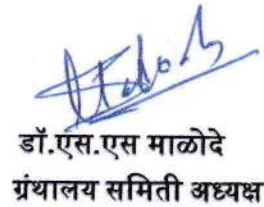 डॉ.एस.एस माळोदे
ग्रंथालय समिती अध्यक्ष